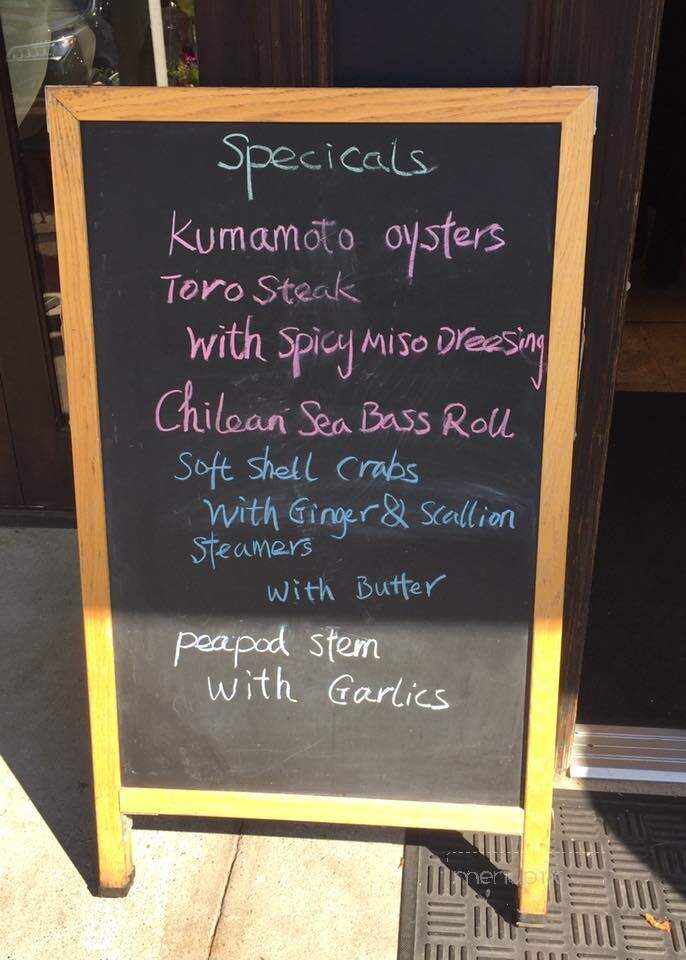 Specicals
Kumamoto oysters
Toro Steak
with Spicy Miso Dreesing
Chilean Sea Bass Roll
Soft Shell Crabs
with Ginger & Scallion
Steamers
with Butter
peapod stem
with Garlics